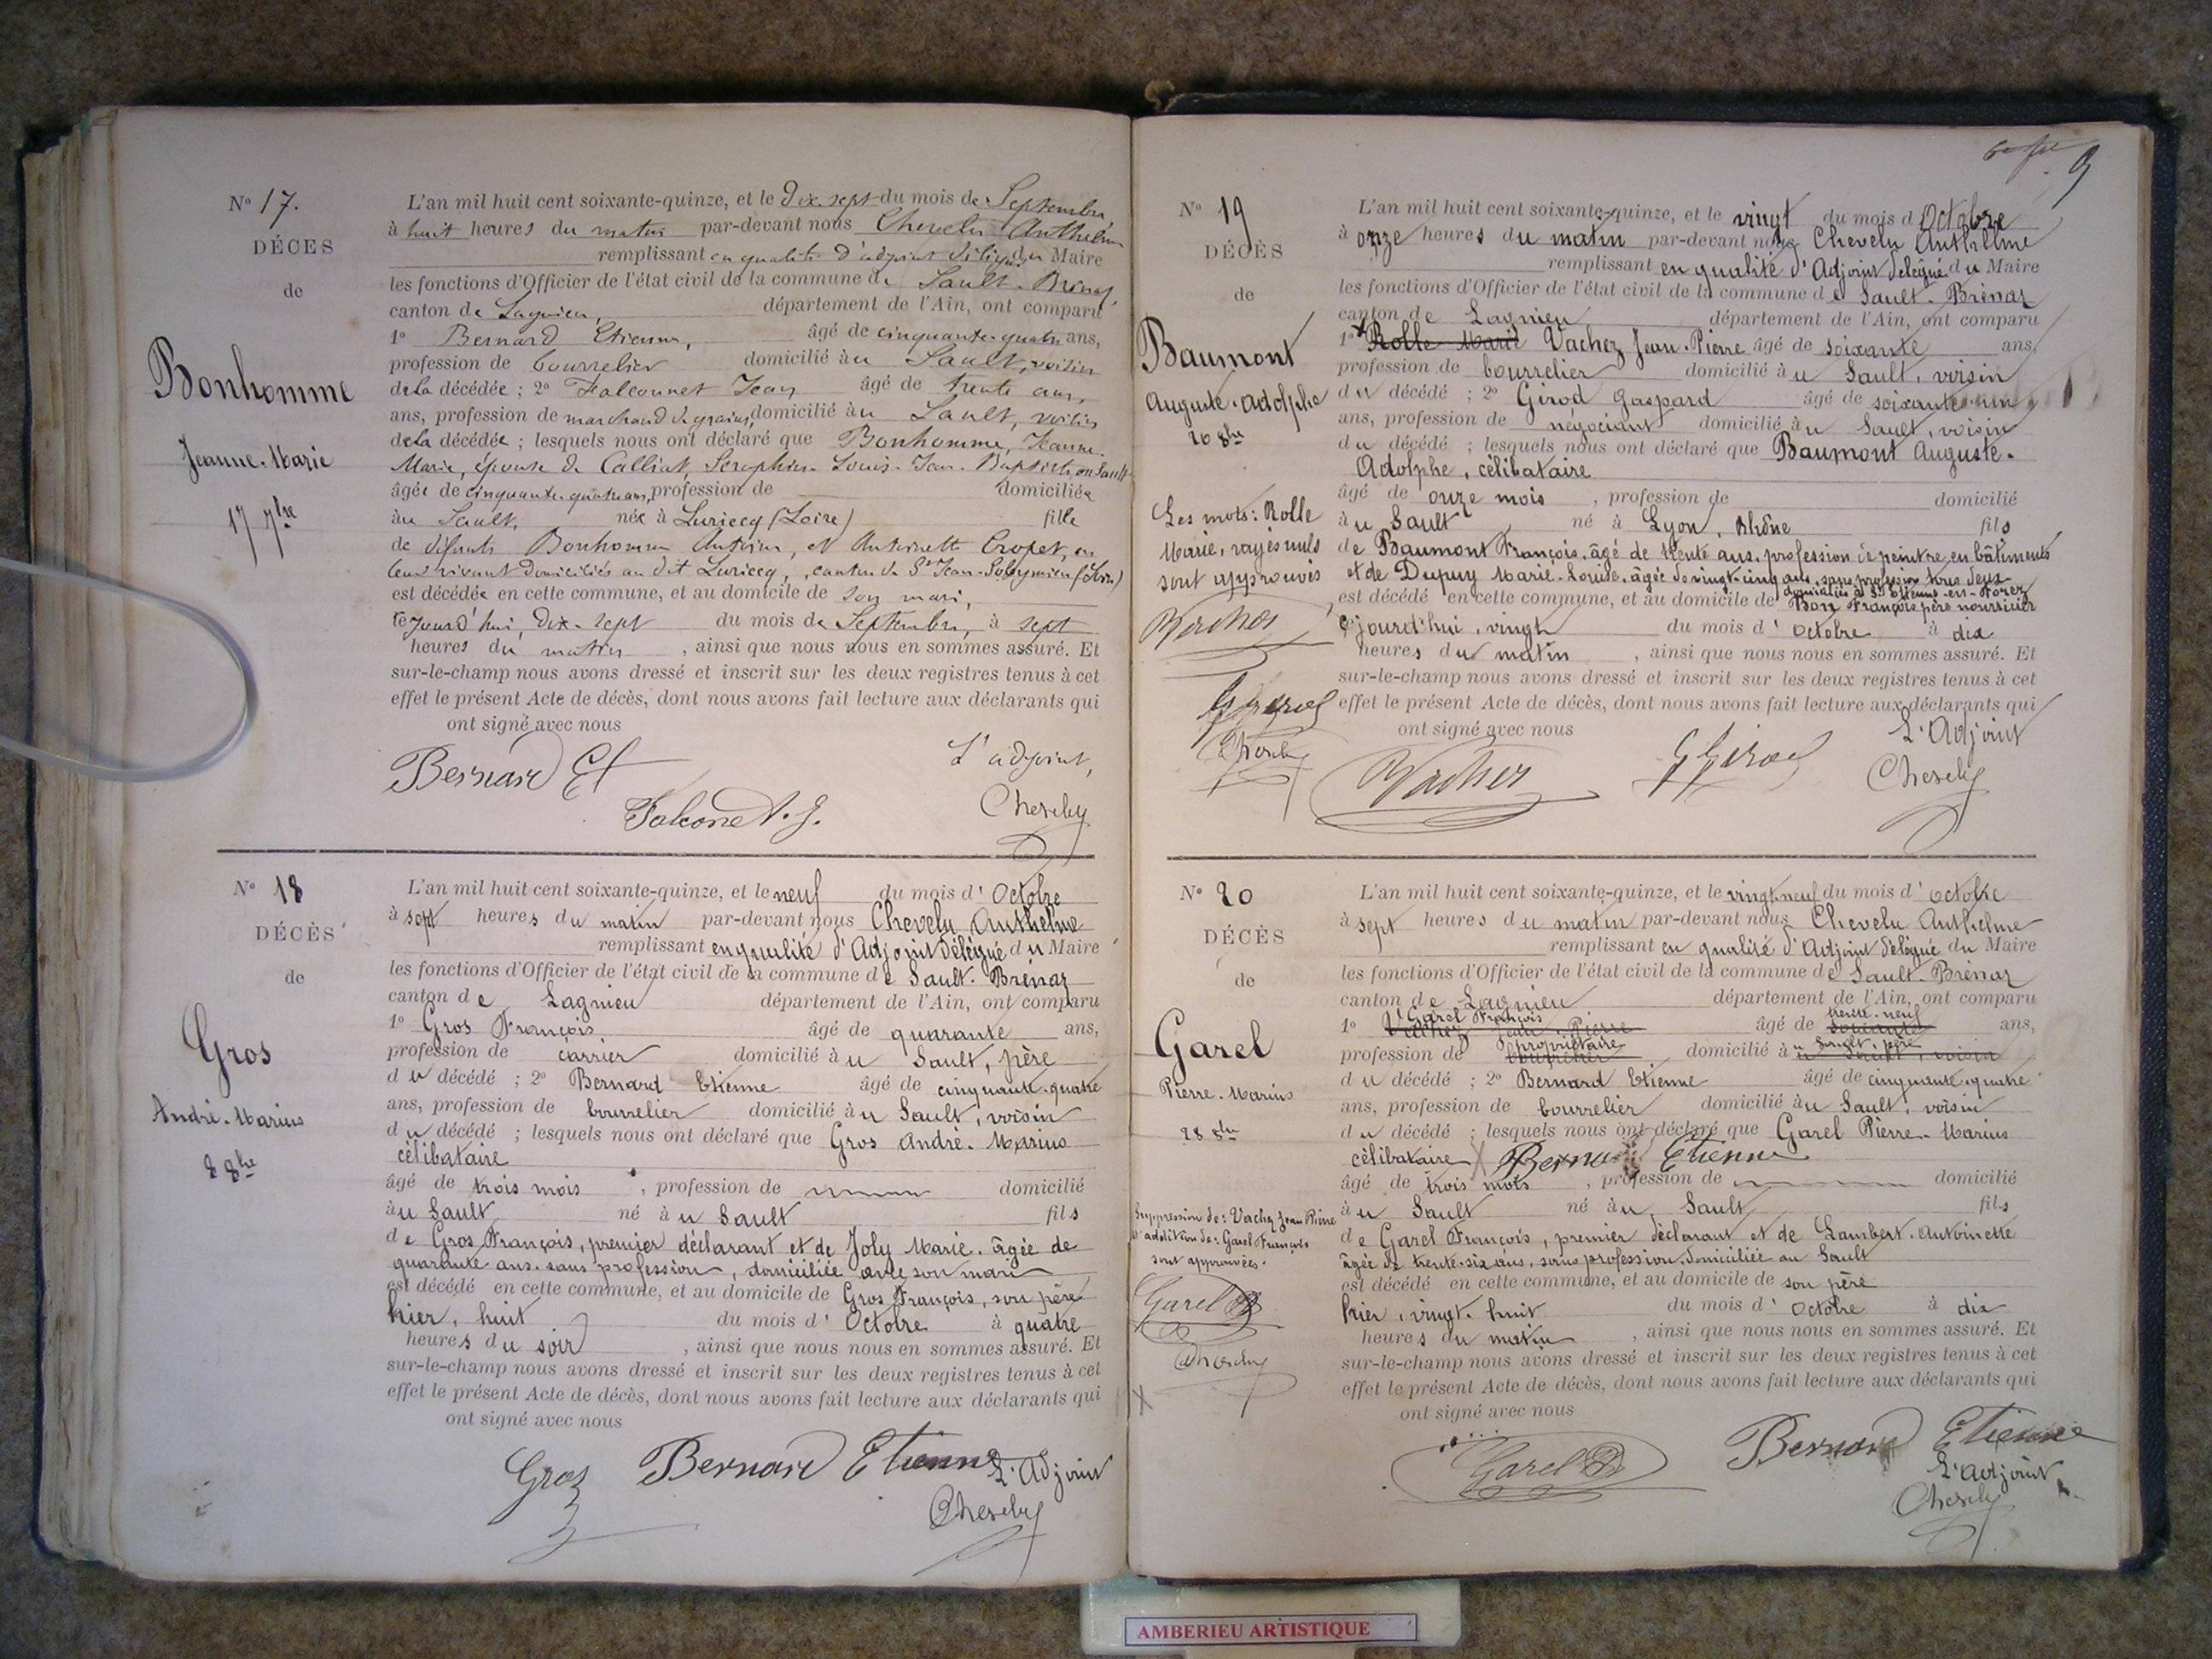 N° 17.
DÉCES
de
Bonhomme
Jeanne-Marie
17 7bre
L'an mil huit cent soixante-quinze, et le Dix-sept du mois de Septembre,
à huit heures du matin par-devant nous Chevelu Anthelme
remplissant en qualité d'adjoint délégué du Maire
les fonctions d'Officier de l'état civil de la commune de Sault-Brénaz,
canton de Lagnieu, département de l'Ain, ont comparu
1° Bernard Etienne, âgé de cinquante-quatre ans,
profession de bourrelier domicilié àu Sault, voisin
de la décédée ; 2° Falconnet Jean âgé de trente ans,
ans, profession de marchand de grains, domicilié àu Sault, voisin
de la décédée ; lesquels nous ont déclaré que Bonhomme, Jeanne-
Marie, épouse de Calliat, Seraphin-Louis-Jean-Baptiste, au Sault
âgée de cinquante-quatre ans, profession de domiciliée
àu Sault, née à Luriecq (Loire) fille
de défunts Bonhomme Antoine, et Antoinette Cropet, en
leur vivant domiciliés au dit Luriecq, canton de St Jean-Soleymieu (Loire)
est décédée en cette commune, et au domicile de son mari,
cejourd'hui, Dix-sept du mois de Septembre, à sept
heures du matin, ainsi que nous nous en sommes assuré. Et
sur-le-champ nous avons dressé et inscrit sur les deux registres tenus à cet
effet le présent Acte de décès, dont nous avons fait lecture aux déclarants qui
ont signé avec nous
Bernard Et
Falconet. J.
L'adjoint,
Chevelu
N° 18
DÉCÈS
de
Gros
André-Marius
8 8bre
L'an mil huit cent soixante-quinze, et le neuf du mois d'Octobre
à sept heures du matin par-devant nous Chevelu Anthelme
remplissant en qualité d'Adjoint Délégué du Maire
les fonctions d'Officier de l'état civil de la commune de Sault-Brénaz
canton de Lagnieu département de l'Ain, ont comparu
1° Gros François âgé de quarante ans,
profession de carrier domicilié àu Sault, père
du décédé ; 2° Bernard Etienne âgé de cinquante-quatre
ans, profession de bourrelier domicilié àu Sault, voisin
du décédé ; lesquels nous ont déclaré que Gros André-Marius
célibataire
âgé de trois mois, profession de domicilié
àu Sault né àu Sault fils
de Gros François, premier déclarant et de Joly Marie. âgée de
quarante ans. sans profession, domiciliée avec son mari
est décédé en cette commune, et au domicile de Gros François, son père
hier, huit du mois d'Octobre à quatre
heures du soir, ainsi que nous nous en sommes assuré. Et
sur-le-champ nous avons dressé et inscrit sur les deux registres tenus à cet
effet le présent Acte de décès, dont nous avons fait lecture aux déclarants qui
ont signé avec nous
Gros
Bernard Etienne
L'Adjoint
Chevelu
9
N° 19
DÉCÈS
de
Baumont
Auguste-Adolphe
20 8bre
Les mots: Rolle
Marie, rayés nuls
sont approuvés
Vacher
G Girod
Chevelu
L'an mil huit cent soixante-quinze, et le vingt du mois d'Octobre
à onze heures du matin par-devant nous Chevelu Anthelme
remplissant en qualité d'Adjoint délégué du Maire
les fonctions d'Officier de l'état civil de la commune de Sault-Brénaz
canton de Lagnieu département de l'Ain, ont comparu
1° Rolle Marie Vachez Jean-Pierre âgé de soixante ans,
profession de bourrelier domicilié àu Sault, voisin
du décédé ; 2° Girod Gaspard âgé de soixante-un
ans, profession de négociant domicilié àu Sault, voisin
du décédé ; lesquels nous ont déclaré que Baumont Auguste-
Adolphe, célibataire
âgé de onze mois, profession de domicilié
àu Sault, né à Lyon, Rhône fils
de Baumont François, âgé de trente ans, profession de peintre en bâtiments
et de Dupuy Marie-Louise, âgée de vingt-cinq ans, sans profession tous deux
domiciliés à St Etienne-en-Forez
est décédé en cette commune, et au domicile de Bon François père nourricier
cejourd'hui, vingt du mois d'Octobre à dix
heures du matin, ainsi que nous nous en sommes assuré. Et
sur-le-champ nous avons dressé et inscrit sur les deux registres tenus à cet
effet le présent Acte de décès, dont nous avons fait lecture aux déclarants qui
ont signé avec nous
Vacher
G Girod
L'Adjoint
Chevelu
N° 20
DÉCÈS
de
Garel
Pierre-Marius
28 8bre
Suppression de: Vachez Jean Pierre
addition de: Garel François
sont approuvées.
Garel
Chevelu
L'an mil huit cent soixante-quinze, et le vingt neuf du mois d'octobre
à sept heures du matin par-devant nous Chevelu Anthelme
remplissant en qualité d'Adjoint délégué du Maire
les fonctions d'Officier de l'état civil de la commune de Sault-Brénaz
canton de Lagnieu département de l'Ain, ont comparu
Garel François trente-neuf
1° Vachez Jean-Pierre âgé de soixante ans,
propriétaire u Sault, père
profession de bourrelier domicilié àu Sault, voisin
du décédé ; 2° Bernard Etienne âgé de cinquante-quatre
ans, profession de bourrelier domicilié àu Sault, voisin
du décédé ; lesquels nous ont déclaré que Garel Pierre-Marius
célibataire X Bernard Etienne
âgé de trois mois, profession de domicilié
àu Sault né àu Sault fils
de Garel François, premier déclarant et de Lambert-Antoinette
âgée de trente-six ans, sans profession, domiciliée au Sault
est décédé en cette commune, et au domicile de son père
hier, vingt-huit du mois d'Octobre à dix
heures du matin, ainsi que nous nous en sommes assuré. Et
sur-le-champ nous avons dressé et inscrit sur les deux registres tenus à cet
effet le présent Acte de décès, dont nous avons fait lecture aux déclarants qui
ont signé avec nous
Garel
Bernard Etienne
L'adjoint
Chevelu
AMBERIEU ARTISTIQUE